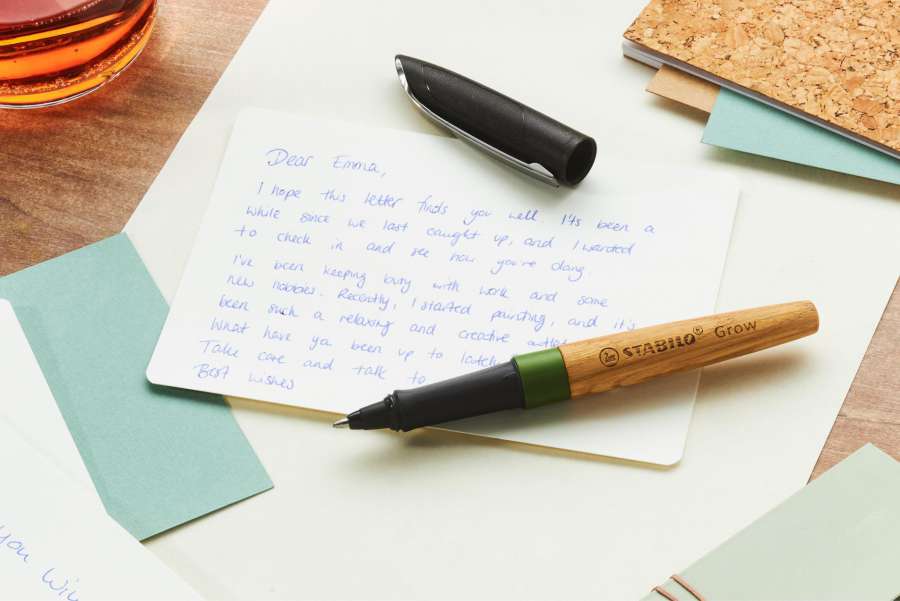 Dear Emma,
I hope this letter finds you well. It's been a
while since we last caught up, and I wanted
to check in and see how you're doing.
I've been keeping busy with work and some
new hobbies. Recently, I started painting, and it's
been such a relaxing and creative outlet
What have you been up to lately
Take care and talk to
Best wishes
STABILO® Grow
you